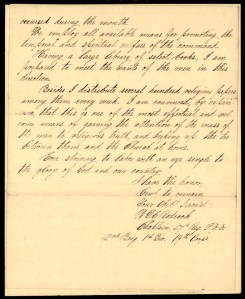 occured during the month.
We employ all available means for promoting the
temporal and spiritual welfare of the command.
Having a large library of select books, I am
prepared to meet the wants of the men in this
direction.
Besides I distribute several hundred religious papers
among them every week. I am convinced, by experience
that this is one of the most effectual and
means of gaining the attention of the mass of
the men to religious truth and keeping up the tie
between them and the Church at home.
striving to labor with an eye single to
the glory of God and our country.
I have the honor
to remain
Your Obt. Servant
Chaplain
2nd Brig 1st Div Corps